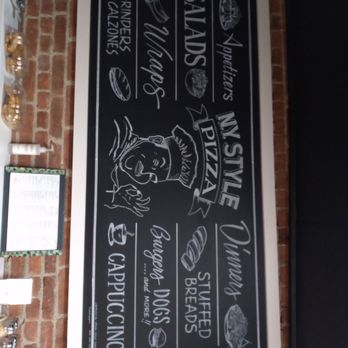 Appetizers
SALADS
Wraps
GRINDERS
CALZONES
N.Y. STYLE
PIZZA
Dinners
STUFFED
BREADS
Burgers DOGS
....and MORE!!
CAPPUCCINO